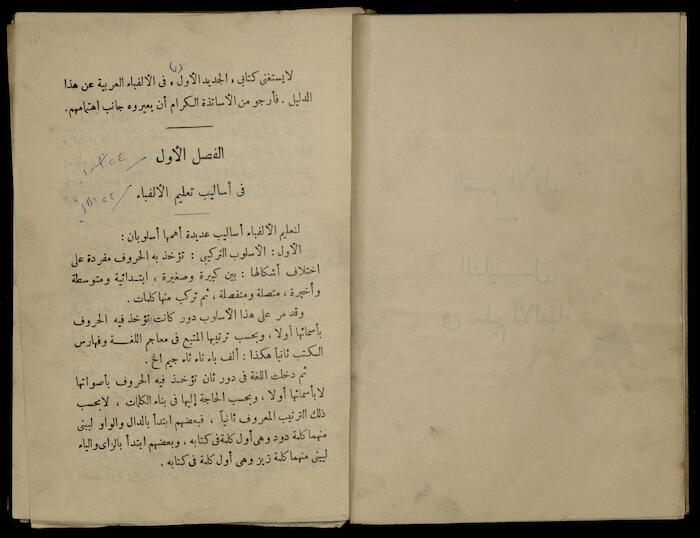 لا يستغنى كتابى ، الجديد الأول ، فى الألفباء العربية عن هذا
الدليل . فأرجو من الأساتذة الكرام أن يعيروه جانب اهتمامهم.
الفصل الأول
فى أساليب تعليم الألفباء
لتعليم الألفباء أساليب عديدة أهمها أسلوبان :
الأول : الأسلوب التركيبى : تؤخذ به الحروف مفردة على
اختلاف أشكالها : بين كبيرة وصغيرة ، ابتدائية ومتوسطة
وأخيرة ، متصلة ومنفصلة ، ثم تركب منها كلمات .
وقد مر على هذا الأسلوب دور كانت تؤخذ فيه الحروف
بأسمائها أولا ، وبحسب ترتيبها المتبع فى معاجم اللغة وفهارس
الكتب ثانياً هكذا : ألف باء تاء ثاء جيم الخ .
ثم دخلت اللغة فى دور ثان تؤخذ فيه الحروف بأصواتها
لا بأسمائها أولا ، وبحسب الحاجة إليها فى بناء الكلمات ، لا بحسب
ذلك الترتيب المعروف ثانياً ، فبعضهم ابتدأ بالدال والواو ليبنى
منهما كلمة دود وهى أول كلمة فى كتابه ، وبعضهم ابتدأ بالزاى والياء
ليبنى منهما كلمة زيز وهى أول كلمة فى كتابه .
القسم الأول
الدليل
فى تعليم الألفباء